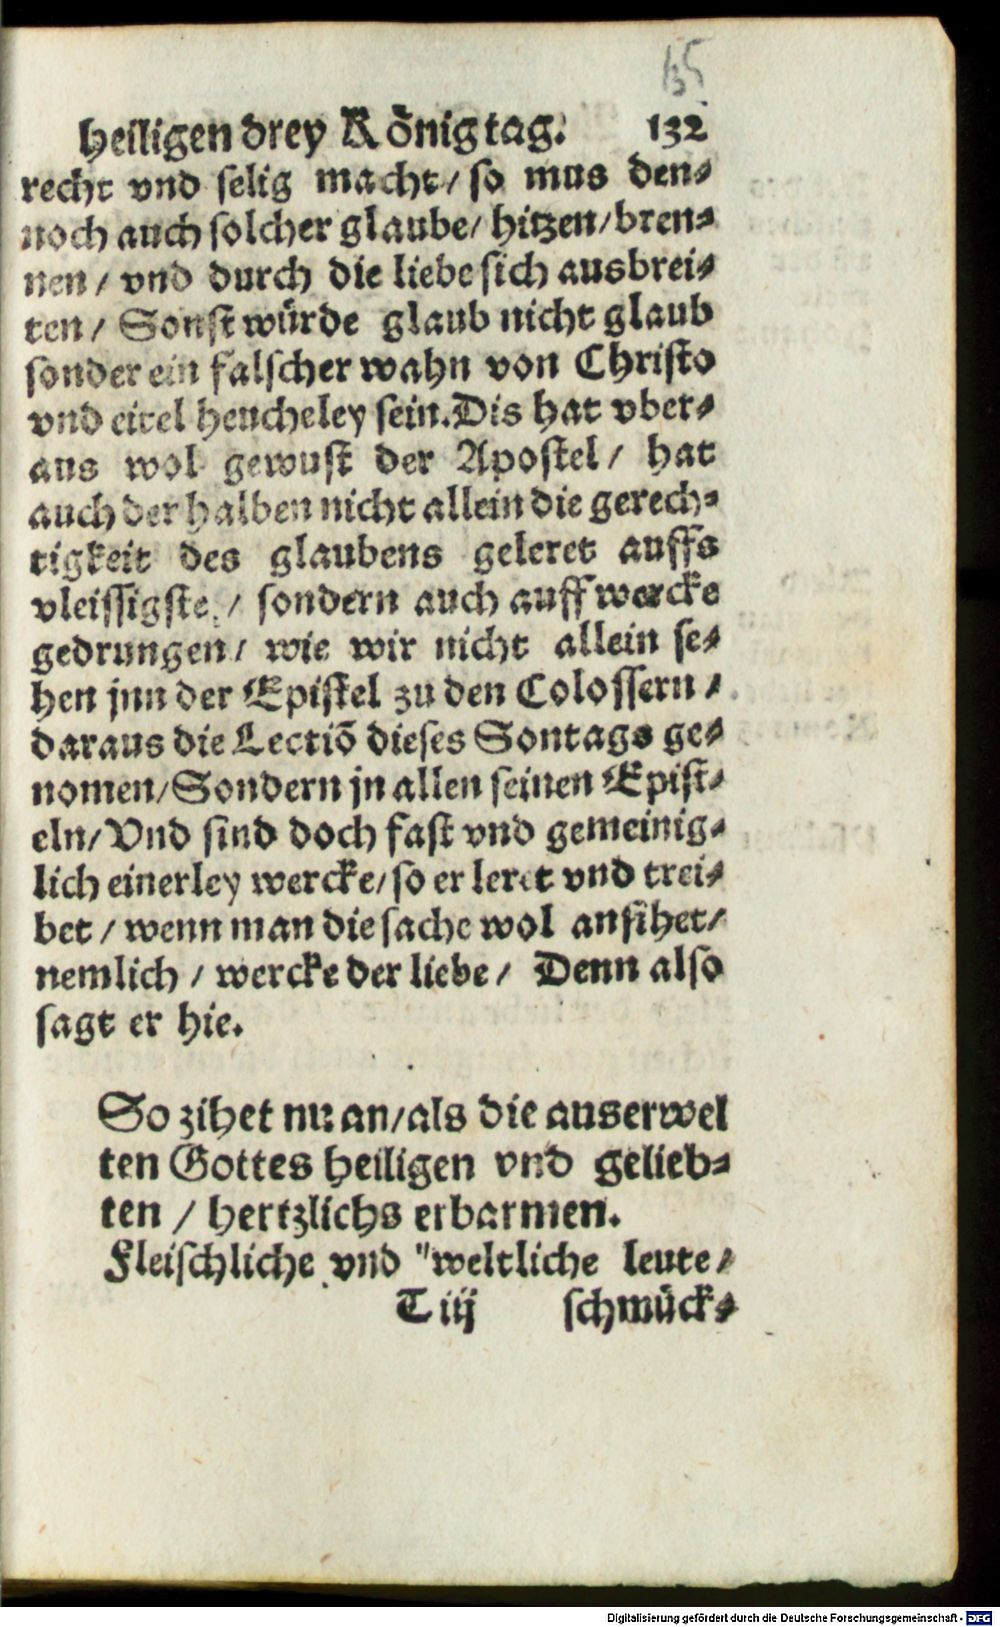 135
heiligen drey Kőnig tag. 132
recht vnd selig macht / so mus den⸗
noch auch solcher glaube / hitzen / bren⸗
nen / vnd durch die liebe sich ausbrei⸗
ten / Sonst würde glaub nicht glaub
sonder ein falscher wahn von Christo
vnd eitel heucheley sein. Dis hat vber⸗
aus wol gewust der Apostel / hat
auch der halben nicht allein die gerech⸗
tigkeit des glaubens geleret auffs
vleissigste / sondern auch auff wercke
gedrungen / wie wir nicht allein se⸗
hen jnn der Epistel zu den Colossern /
daraus die Lectiō dieses Sontags ge⸗
nomen / Sondern jn allen seinen Epist⸗
eln / Vnd sind doch fast vnd gemeinig⸗
lich einerley wercke / so er leret vnd trei⸗
bet / wenn man die sache wol ansihet /
nemlich / wercke der liebe / Denn also
sagt er hie.
So zihet nu an / als die auserwel
ten Gottes heiligen vnd gelieb⸗
ten / hertzlichs erbarmen.
Fleischliche vnd weltliche leute /
T iij schmück⸗
Digitalisierung gefördert durch die Deutsche Forschungsgemeinschaft - DFG